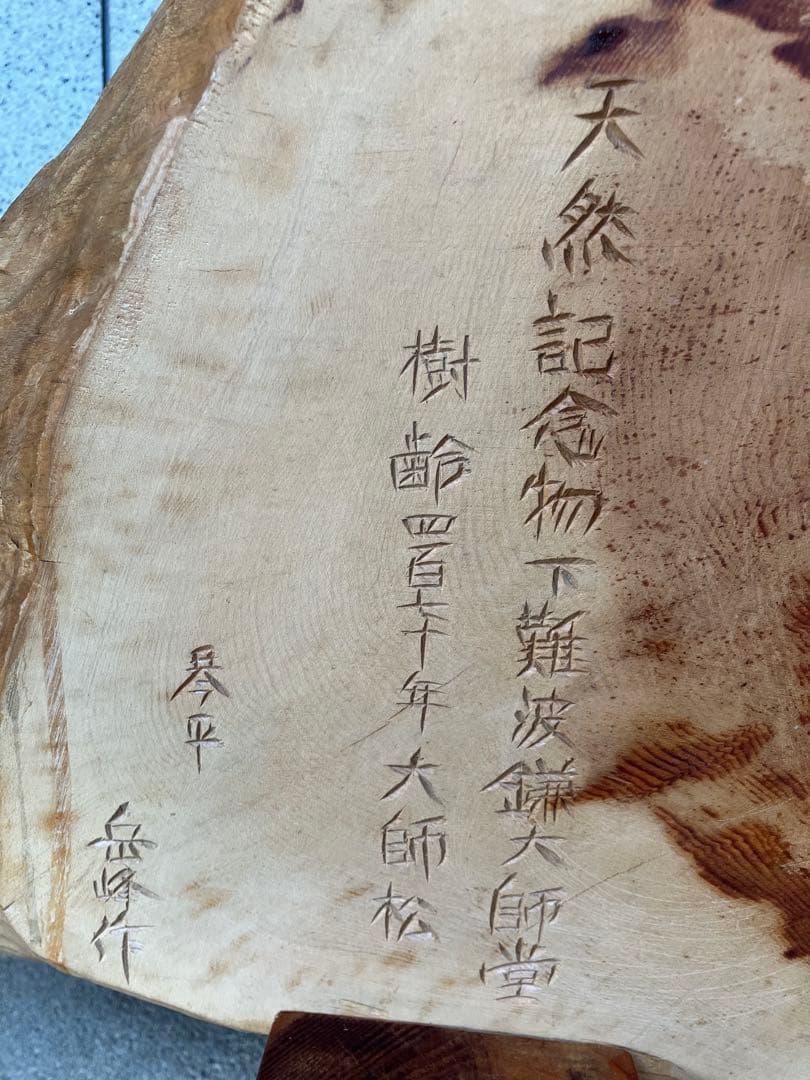 天然記念物下難波鎌大師堂
樹齢四百七十年大師松
琴平
岳峰作